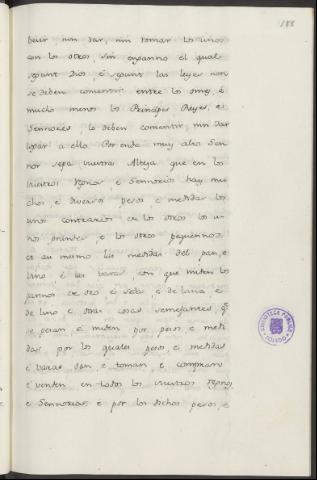 188
bevir nin dar, nin tomar los unos
con los otros, sin enganno el qual
segunt Dios é segunt las leyes non
se deben consentir entre los omes, é
mucho menos los Principes Reyes, é
Sennores, lo deben consentir, nin dar
logar a ello Por ende muy alto Sen
nor sepa vuestra Alteza que en los
vuestros Regnos, é Sennorios hay mu
chos, é diversos pesos, é medidas los
unos contrarios de los otros los u-
nos grandes, é los otros pequennos,
eso mismo las medidas del pan, é
vino é las varas con que miden los
pannos de oro é seda, é de lana é
de lino é otras cosas semejantes, q.e
se pesan, é miden por peso, é medi
das por los quales pesos, é medidas
é varas dan é toman é compran
é venden en todos los vuestros Regnos
é Sennorios, é por los dichos pesos, é
BIBLIOTECA PUBLICA
TOLEDO